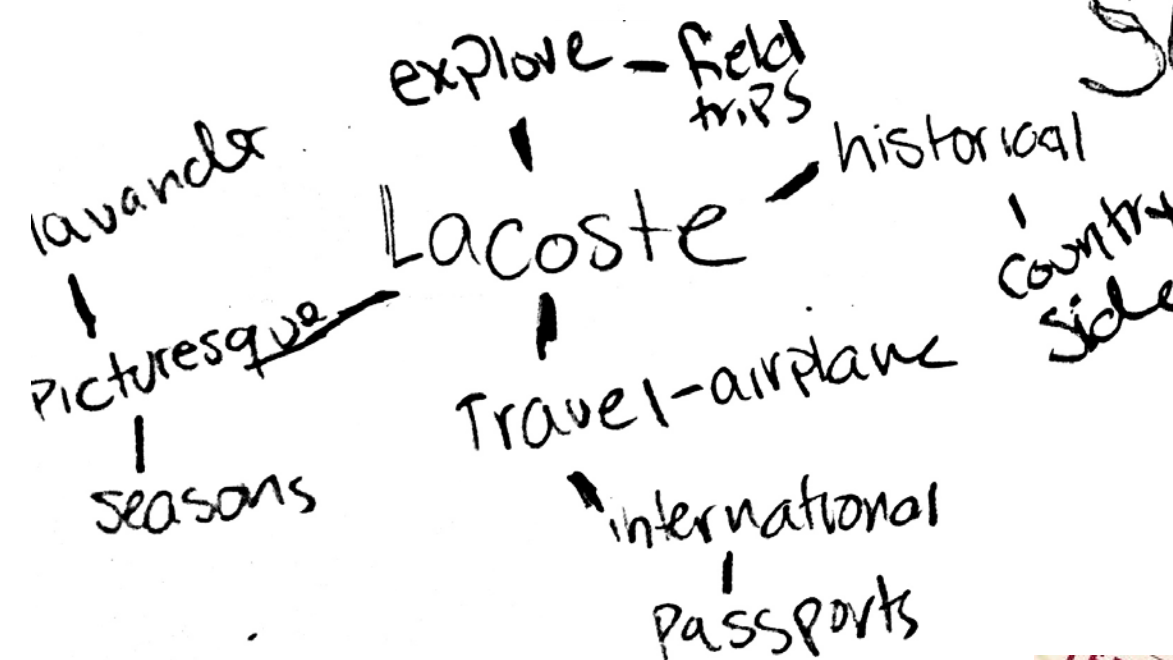 explore - field
trips
historical
lavander
Lacoste
country
side
picturesque
Travel-airplane
seasons
international
passports